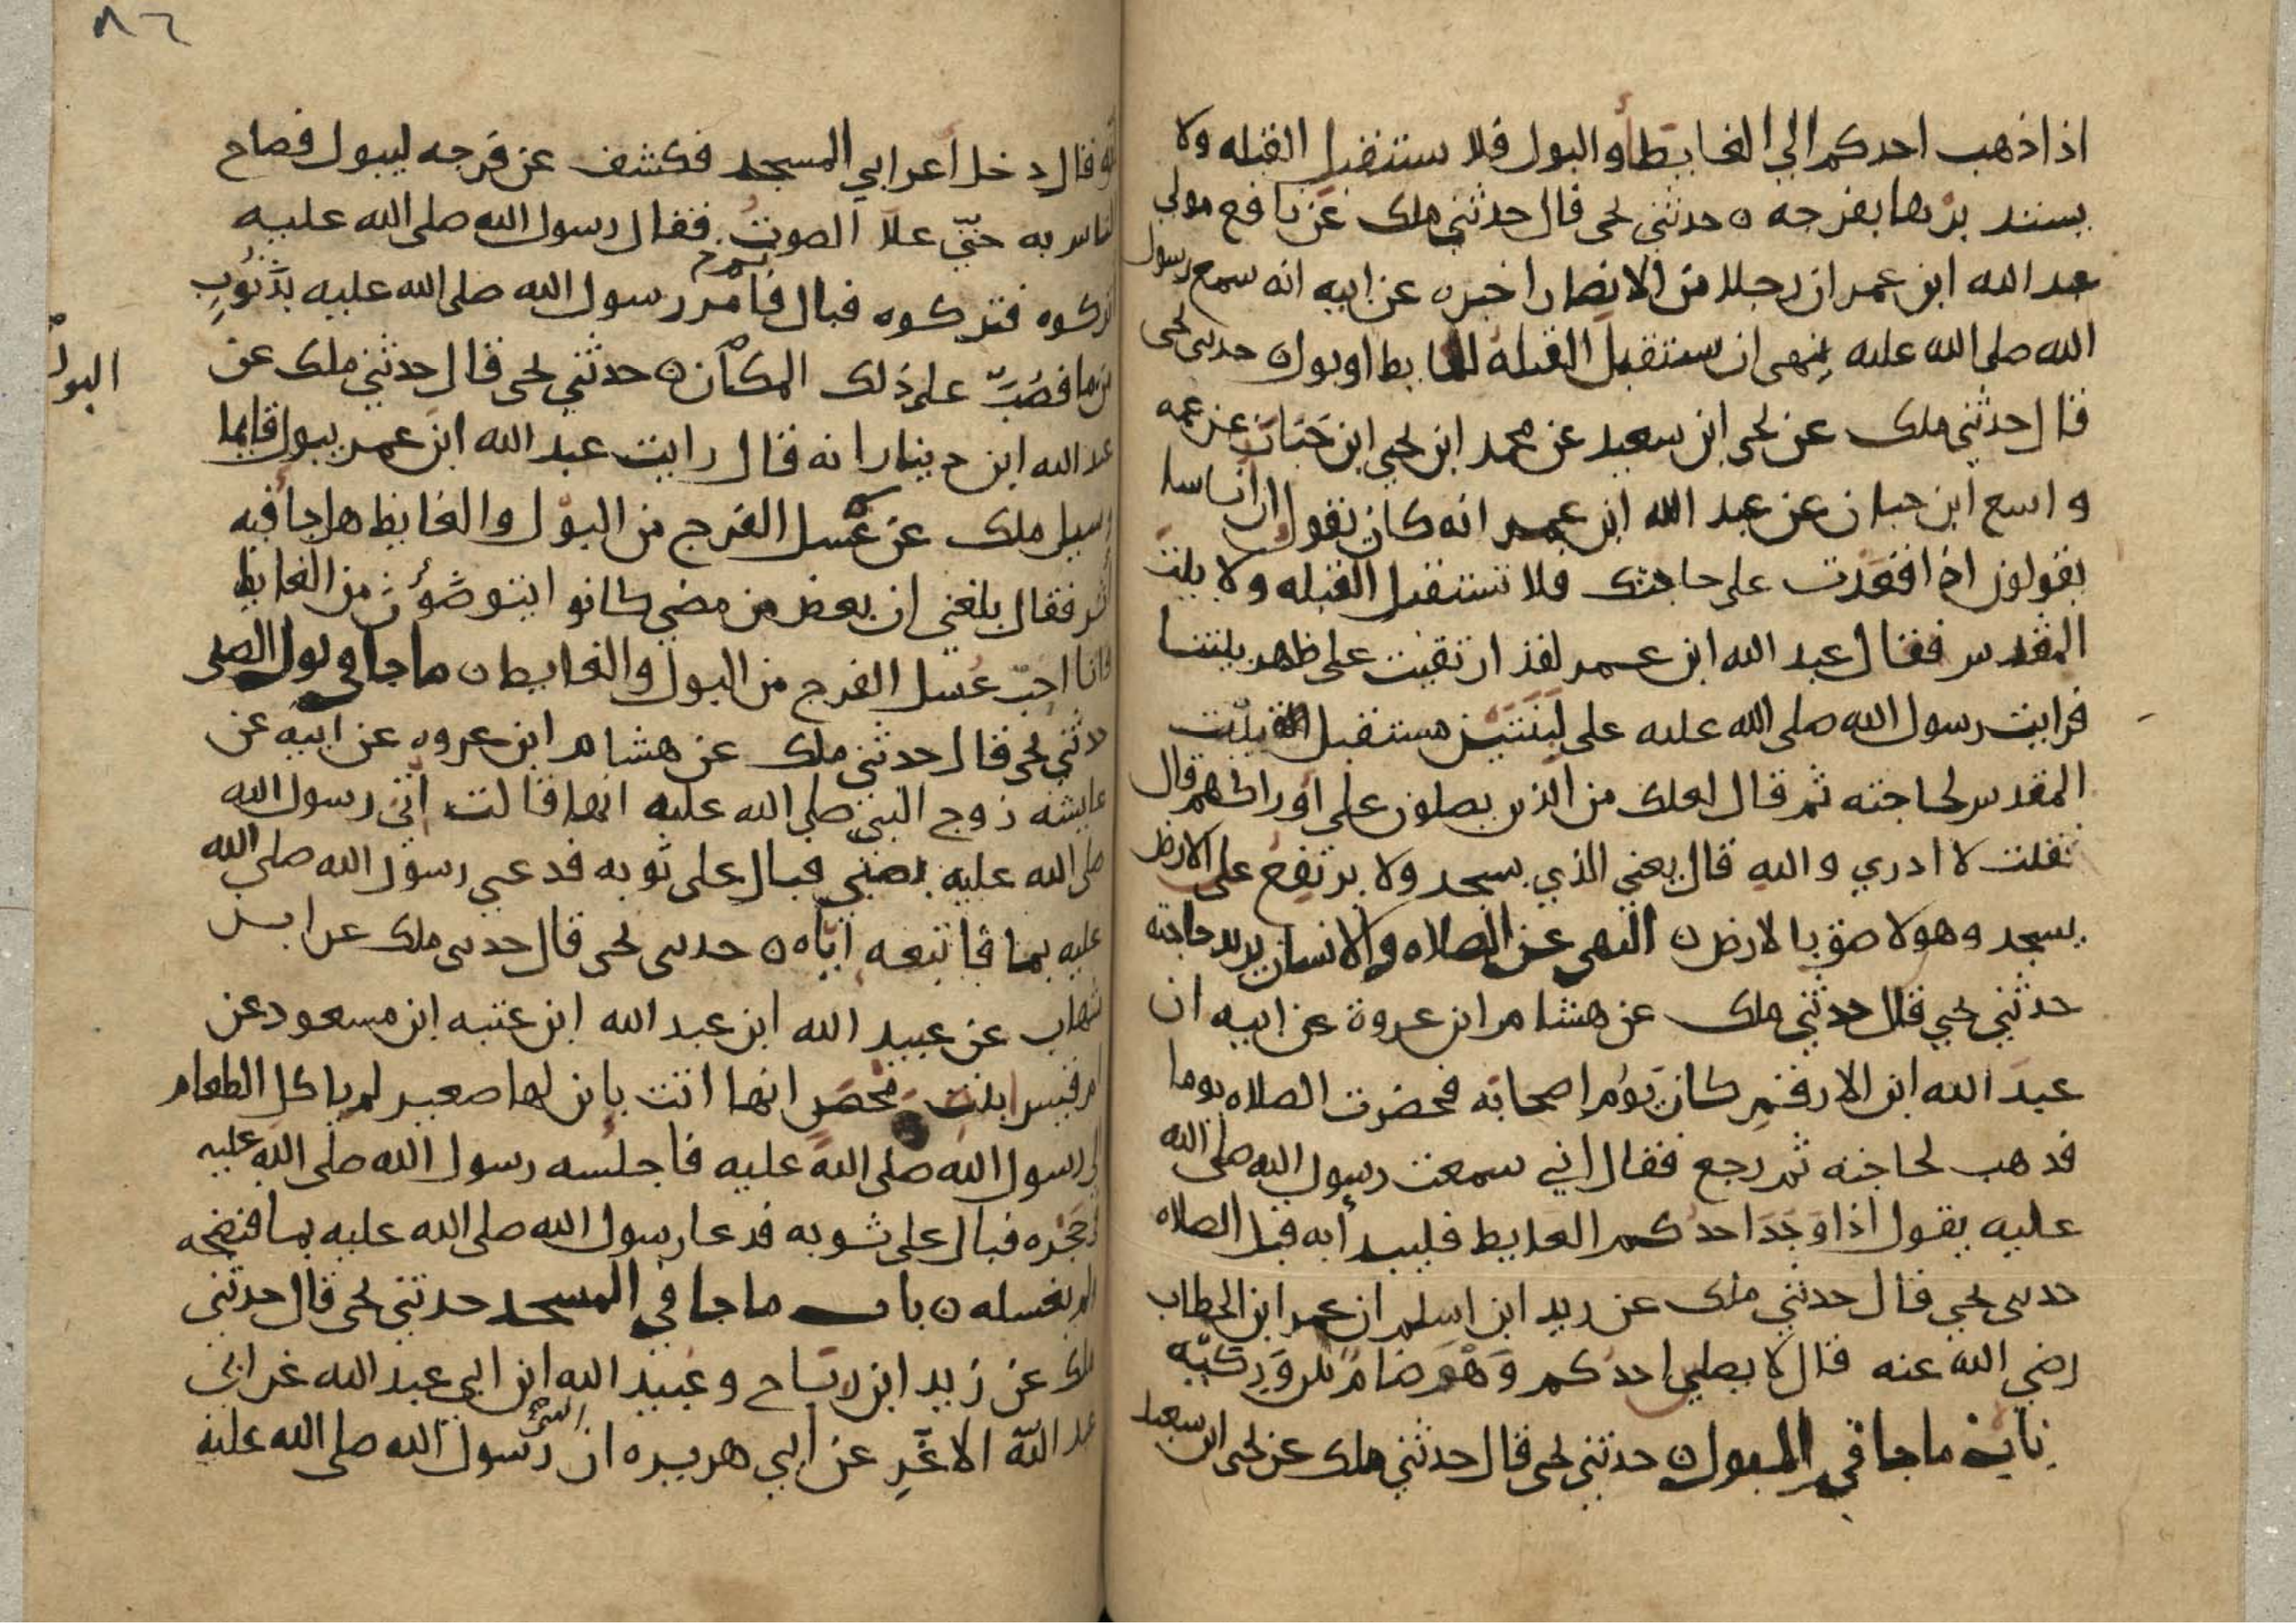 اذا ذهب احدكم الي الغايط أو البول فلا يستقبل القبله ولا
يستدبرها بفرجه ه حدثني يحي قال حدثني ملك عن نافع مولي
عبد الله ابن عمر ان رجلا من الانصار اخبره عن ابيه انه سمع رسول
الله صلى الله عليه ينهى ان ستقبل القبلة لغايط او بول ه حدثني يحي
قال حدثني ملك عن يحي ابن سعيد عن محمد ابن يحي ابن حبان عن عمه
واسع ابن حبان عن عبد الله ابن عمر انه كان يقول ان أناسا
يقولون اذا قعدت على حاجتك فلا تستقبل القبله ولا بيت
المقدس فقال عبد الله ابن عمر لقد ارتقيت على ظهر بيتنا
فرايت رسول الله صلى الله عليه على لبنتين مستقبل بيت
المقدس لحاجته ثم قال لعلك من الذين يصلون على أوراكهم قال
فقلت لا ادري والله قال يعني الذي يسجد ولا يرتفع على الارض
يسجد وهو لاصق بالارض ه النهي عن الصلاه والانسان يريد حاجته
حدثني يحي قال حدثني ملك عن هشام ابن عروة عن ابيه ان
عبد الله ابن الارقم كان يؤم اصحابه فحضرت الصلاه يوما
فذهب لحاجته ثم رجع فقال اني سمعت رسول الله صلى الله
عليه يقول اذا وجد احدكم الغايط فليبدأ به قبل الصلاه
حدثني يحي قال حدثني ملك عن زيد ابن اسلم ان عمر ابن الخطاب
رضي الله عنه قال لا يصلي احدكم وهو ضام بين وركيه
باب ما جا في البول ه حدثني يحي قال حدثني ملك عن يحي ابن سعيد
٨٦
انه قال دخل أعرابي المسجد فكشف عن فرجه ليبول فصاح
الناس به حتي علا الصوت فقال رسول الله صلى الله عليه
اتركوه فتركوه فبال فأمر رسول الله صلى الله عليه بذنوب
من ما فصب على ذلك المكان ه حدثني يحي قال حدثني ملك عن
عبد الله ابن دينار انه قال رايت عبد الله ابن عمر يبول قايما
البول
وسيل ملك عن غسل الفرج من البول والغايط هل جا فيه
أثر فقال بلغني ان بعض من مضي كانوا يتوضؤن من الغايط
وانا احب غسل الفرج من البول والغايط ه ما جا في بول الصبي
حدثني يحي قال حدثني ملك عن هشام ابن عروه عن ابيه عن
عايشه زوج النبي صلى الله عليه انها قالت أتي رسول الله
صلى الله عليه بصبي فبال على ثوبه فدعي رسول الله صلى الله
عليه بما فأتبعه اياه ه حدثني يحي قال حدثني ملك عن ابن
شهاب عن عبيد الله ابن عبد الله ابن عتبه ابن مسعود عن
ام قيس ابنت محصن انها اتت بابن لها صغير لم ياكل الطعام
الى رسول الله صلى الله عليه فاجلسه رسول الله صلى الله عليه
في حجره فبال على ثوبه فدعا رسول الله صلى الله عليه بما فنضحه
ولم يغسله ه باب ما جا في المسجد حدثني يحي قال حدثني
ملك عن زيد ابن رباح وعبيد الله ابن ابي عبد الله عن ابي
عبد الله الاغر عن أبي هريره ان رسول الله صلى الله عليه